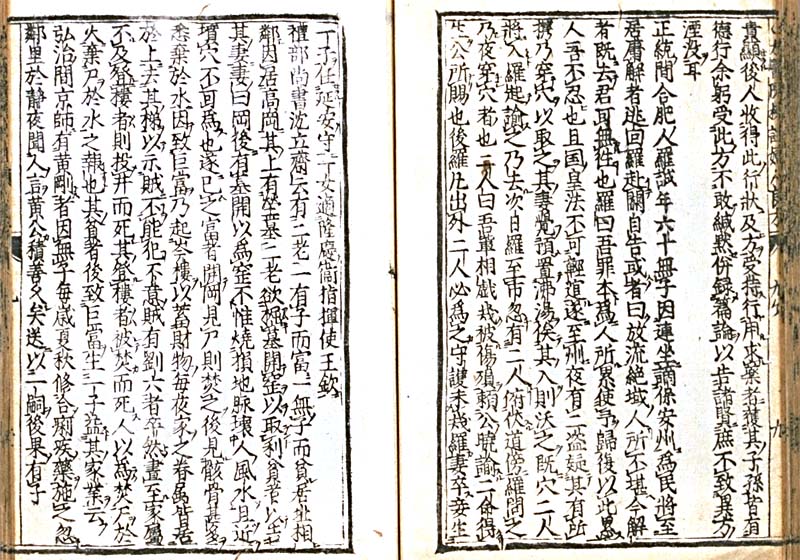 貴顯後人收得此行狀及方受持行用求藥者獲其子孫皆有
德行余躬受此方不敢緘默併録篇論以告諸賢庶不致異方
湮没耳
正統間合肥人羅誠年六十無子因連坐謫保安州為民將至
居庸解者逃回羅赴關自告或者曰放流絕域人所不堪今解
者既去君可無往也羅曰吾罪本為人所累使吾歸後以此累
人吾不忍也且国皇法不可輕遂至州夜有二盜疑其有所
携乃穿穴以取之其妻覺預置沸湯俟其入則沃之既穴二人
將入羅起諭之乃去次日羅至市忽有二人俯伏道傍羅問之
乃夜穿穴者也一人曰吾輩相戲被傷殞賴公曉諭二命得
生公所賜也後羅凡出外二人必為之守護未幾羅妻卒妾生
一子任延安守一女適隆慶衛指揮使王欽
禮部尚書沈立齋云有二老一有子而富一無子而貧居址相
鄰因居高岡其上有塋墓二老欲掘墓開窑以取利貧者以告
其妻妻曰岡後有墓開以為窑不惟燒損地脉壞人風水且近
墳穴不可為也遂已之富者開岡見尸則焚之後見骸骨甚多
悉棄於水因致巨富乃起岑樓以蓄財物每夜家之眷屬皆居
於上去其梯以示賊不能犯不意賊有劉六者卒然晝至家屬
不及登樓者則投井而死其登樓者被焚而死人以為焚尸於
火棄尸於水之報也其貧者後致巨富生一子益其家業云
弘治間京師有黃剛者因無子每歲夏秋修合痢疾藥施之忽
鄰里於静夜聞人言黃公積善久矣送以一嗣後果有子